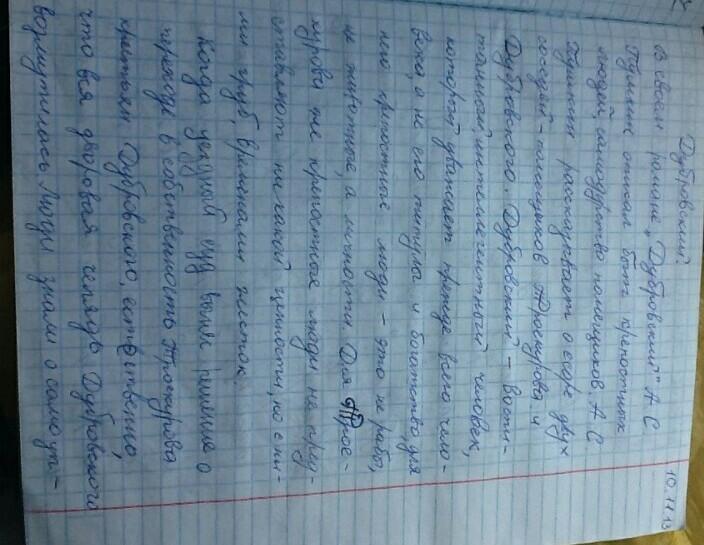 10.11.13
Дубровский.
В своем романе „Дубровский" А С
Пушкин описал быт крепостных
людей, самодурство помещиков. А. С
Пушкин рассказывает о ссоре двух
соседей - помещиков Троекурова и
Дубровского. Дубровский - воспи-
танный, интеллегентный человек,
который уважает прежде всего чело-
века, а не его титулы и богатство, для
него крепостные люди - это не рабы,
не животные, а личности. Для Трое-
курова же крепостные люди не пред-
ставляют ни какой ценности, но с ни-
ми груб, временами жесток.
Когда уездный суд вынес решение о
переходе в собственность Троекурова
крестьян Дубровского, естественно,
что вся дворовая челядь Дубровского
возмутилась. Люди знали о самоуп-